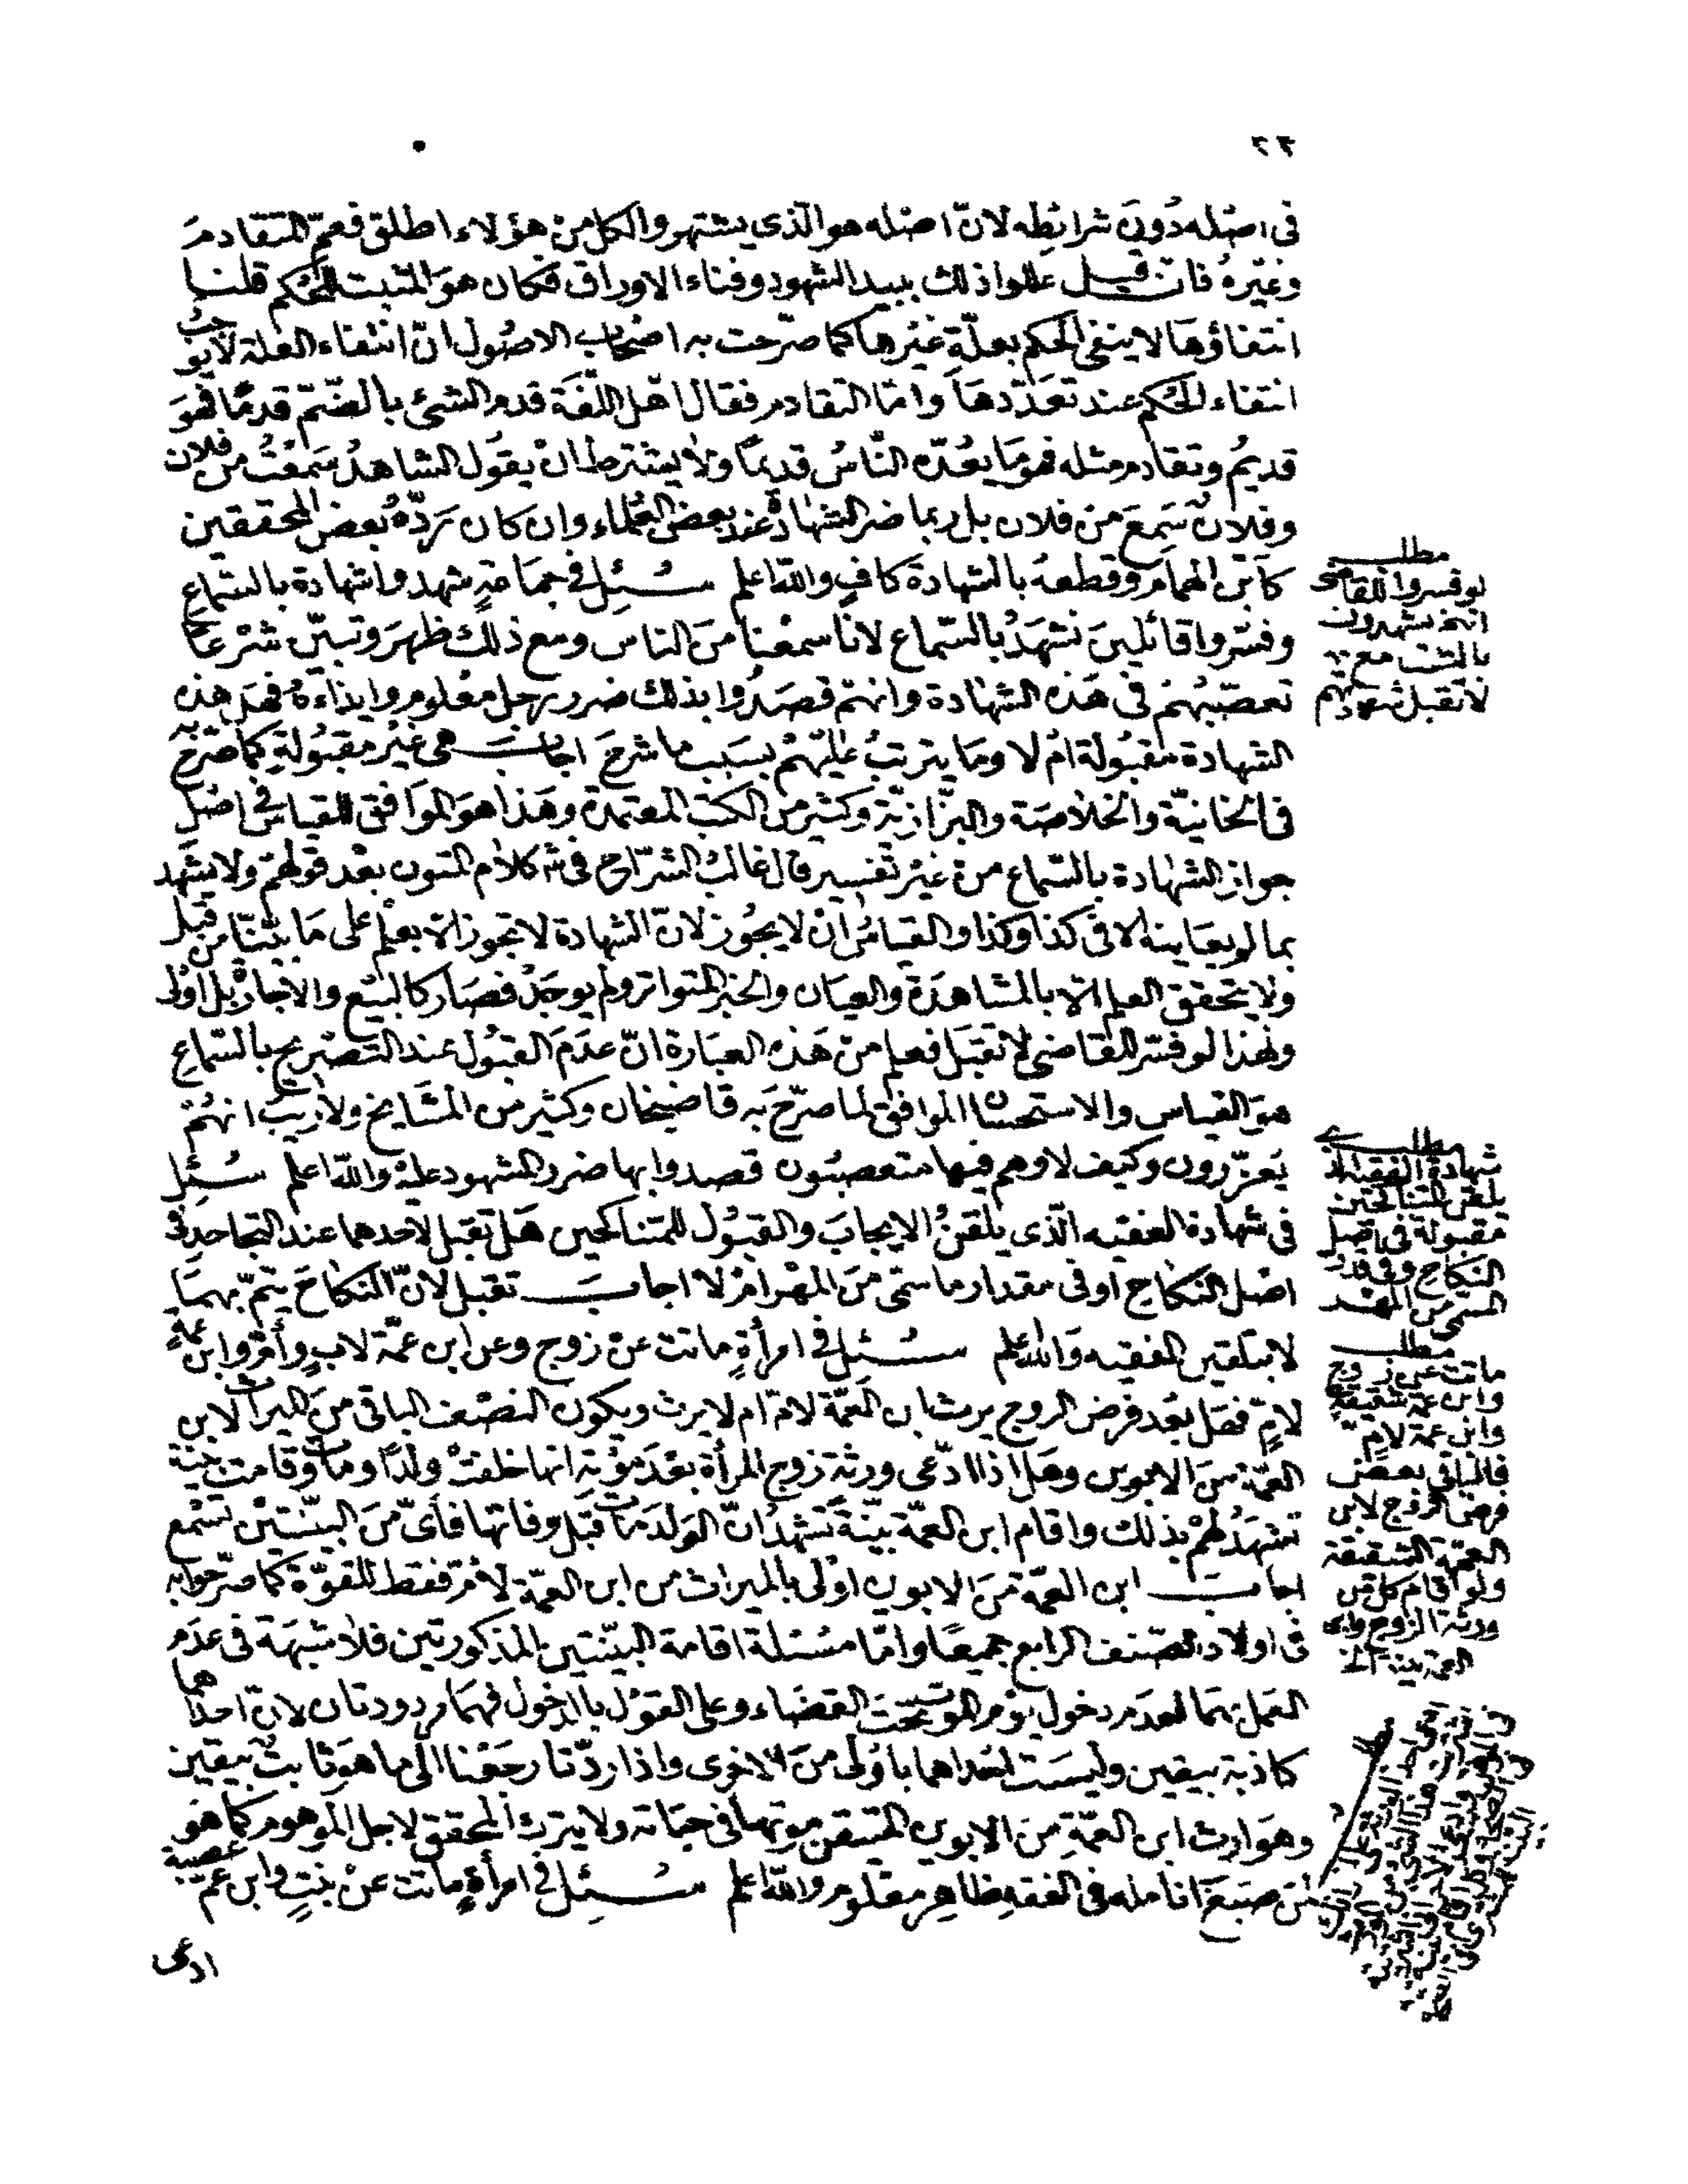 ٢٢
في اصله دُونَ شرائطه لانّ اصله هو الّذي يشتهر والكل من هؤلاء اطلق فعمّ المتقادمَ
وغيرهُ فان قيل عللوا ذلك ببيد الشهود وفناء الاوراق فكان هوَ المثبت للحُكم قلنا
انتفاؤها لا ينفي الحكم بعلّةٍ غيرها كما صرّحت به اصحاب الاصُول انّ انتفاء العلة لا يوجبُ
انتفاء الحكم عند تعدّدها وامّا التقادم فقال اهل اللّغة قدم الشئ بالضّم قدمًا فهوَ
قديمُ وتقادم مثله فهو مَا يعُدّه النّاسُ قديمًا ولا يشترط انْ يقول الشاهدُ سَمعْتُ من فلان
وفلانٌ سَمِعَ من فلان بل ربما ضر الشهادةَ عند بعض العُلماء وان كان رَدّهُ بعض المحققين
كابن الهمام وقطعهُ بالشهادة كافٍ والله اعلم سُئِلَ في جماعةٍ شهدوا شهادة بالسّماعِ
وفسّروا قائلينَ نشهَدُ بالسّماع لانا سمعْنا منَ الناس ومع ذلك ظهرَ وتبيّن شرْعًا
تعصّبهُم في هَذه الشهادة وانهم قصَدُوا بذلك ضرر رجل معْلوم وايذاءهُ فهَل هذه
الشهادة مقبُولة امْ لا ومَا يترتبُ عليْهمْ بسَبب ما شرحَ اجابَ هي غيْر مقبُولةٍ كما صَرّحَ به
في الخانيّة والخلاصَة والبزّازيّة وكثير من الكتب المعتمدة وهَذا هوَ الموَافق للقياس في اصْل
جواز الشهادة بالسّماع من غيْر تفسير قال غالبُ الشرّاح في شرح كلام المتون بعْد قولهمْ ولا يشهد
بما لم يعَاينه الا في كذا وكذا والقياسُ انْ لا يجُوز لانّ الشهادة لا تجوز الّا بعلم على مَا بيّنّا من قبل
ولا يتحقق العلم الّا بالمشاهدَة والعيان والخبر المتواتر ولم يوجَدْ فصَار كالبيْع والاجارة بل اوْلى
ولهذا لو فسّر للقاضي لا تقبل فعلم منْ هَذه العبَارة انّ عدَمَ القبُول عند التصْريح بالسّماع
هوَ القياس والاستحسان الموافق لما صرّحَ به قاضيخان وكثير من المشايخ ولا ريبَ انهُمْ
يَعزّرون وكيف لا وهم فيها متعصبُون قصدوا بها ضرر المشهود عليهْ والله اعلم سُئِلَ
في شهادة الفقيه الّذي يلقّنُ الايجابَ والقبُول للمتناكحين هَل تقبل لاحدهما عند التجاحد في
اصْل النّكاح او في مقدار ما سمّى منَ المهْر امْ لا اجابَ تقبل لانّ النكاحَ يتمّ بهمَا
لا بتلقين الفقيه وَالله اعلم سُئِل في امرأةٍ ماتت عنْ زوج وعن ابن عمّة لابٍ وأمّ وابن عمّةٍ
لامّ فهَل بعْد فرض الزوج يرث ابن العمّة لامّ ام لا يرث ويكون النصْف الباقي منَ الميراث لابن
العمّة منَ الابوين وهَل اذا ادّعى ورثة زوج المرأة بعْدَ موْته انها خلفتْ ولدًا ومات وقامت بيّنة
تشهَدُ لهمْ بذلك واقام ابن العمّة بيّنةً تشهدُ انّ الوَلدَ مات قبْل وفاتها فأيّ منَ البيّنتيْن تسْمع
اجابَ ابن العمّة منَ الابوين اوْلى بالميراث من ابن العمّة لامّ فقط للقوّة كما صرّحوا به
في اولاد الصّنف الرابع جميعًا وامّا مسْئلة اقامة البيّنتين المذكورتين فلا شبهَة في عدَم
العَمل بهمَا لعدَم دخول يوْم الموت تحت القضَاء وعلى القوْل بالدخول فهمَا مردودتان لانّ احداهما
كاذبة بيقين وليسَت احداهما باوْلى منَ الاخرى واذا ردّتا رجَعْنا الى ما هوَ ثابتٌ بيقين
وهوَ ارث ابن العمّةِ منَ الابوين المتيقن موتها في حيَاته ولا يترك المحقق لاجل الموهوم كما هو
لمَن صبَغَ انامله في الفقهِ ظاهر معْلوم والله اعلم سُئِل في امرأةٍ ماتت عنْ بنتٍ وابن عمّ عصبة
ادعى
مطلب
لو فسروا للقاضي
انهم يشهدون
بالتسامع
لا تقبل شهادتهم
مطلب
شهادة الفقيه الذي
يلقن المتناكحين
مقبولة في اصل
النكاح وفي قدر
المسمى من المهر
مطلب
ماتت عن زوج
وابن عمة شقيقة
وابن عمة لام
فالباقي بعد
فرض الزوج لابن
العمة الشقيقة
ولو اقام كل من
ورثة الزوج وابن
العمة بينة الخ